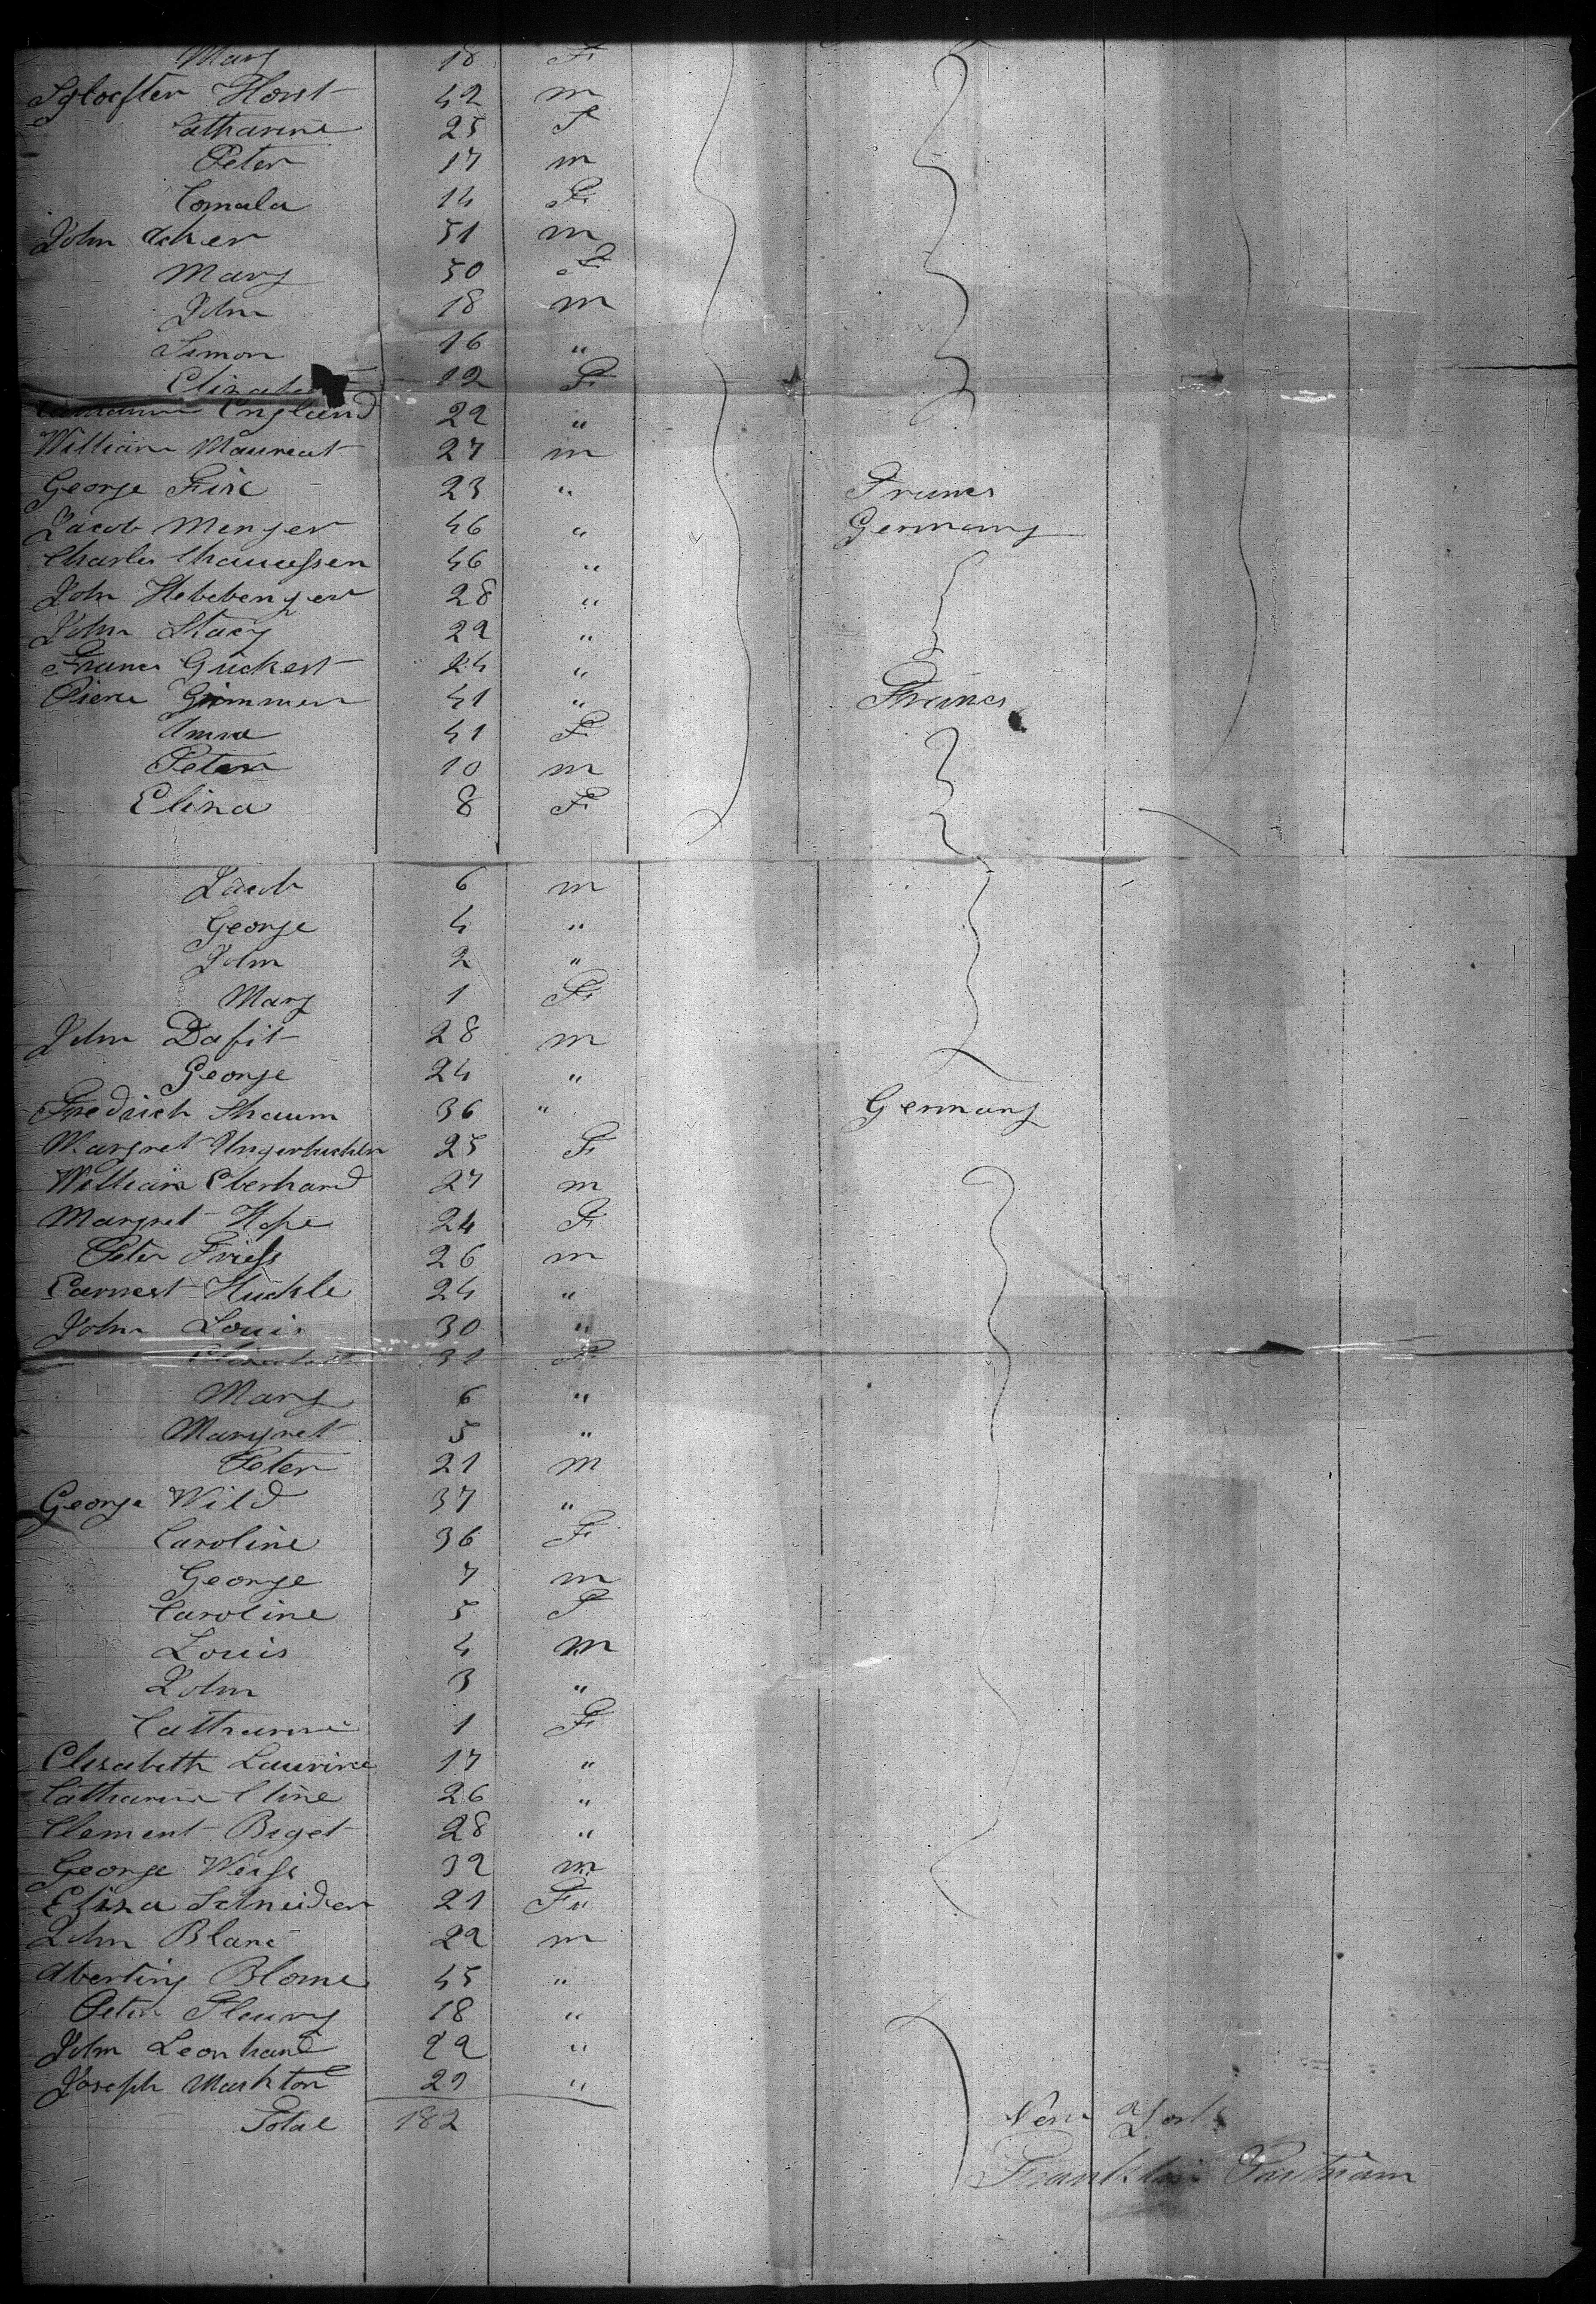 Mary 18 F
Sylvester Horst 42 m
Catharine 25 F
Peter 17 m
Comala 14 F
John Acker 51 m
Mary 50 F
John 18 m
Simon 16 "
12 F
England 22 "
William Maureat 27 m
George Fix 23 " France
Jacob Menger 46 " Germany
Charles 46 "
John 28 "
John Stacy 22 "
Franci Guckert 24 "
Piere Grimmer 41 " France
Anna 41 F
Peter 10 m
Elina 8 F
Jacob 6 m
George 4 "
John 2 "
Mary 1 F
John Dafit 28 m
George 24 "
Fredrich Shaum 36 " Germany
Margret 25 F
William Eberhard 27 m
Margret Hope 24 F
Peter Friess 26 m
Earnest Huckle 24 "
John Louis 30 "
31 F
Mary 6 "
Margret 5 "
Peter 21 m
George Wild 37 "
Caroline 36 F
George 7 m
Caroline 5 F
Louis 4 m
John 3 "
Catharine 1 F
Elisabeth Laurine 17 "
Catharine Cline 26 "
Clement Biget 28 "
George Weiss 32 m
Elisa Schneider 21 F "
John Blanc 22 m
Blome 45 "
Peter Fleury 18 "
John Leonhard 22 "
Joseph Markton 29 "
Total 182
New York
Franklin